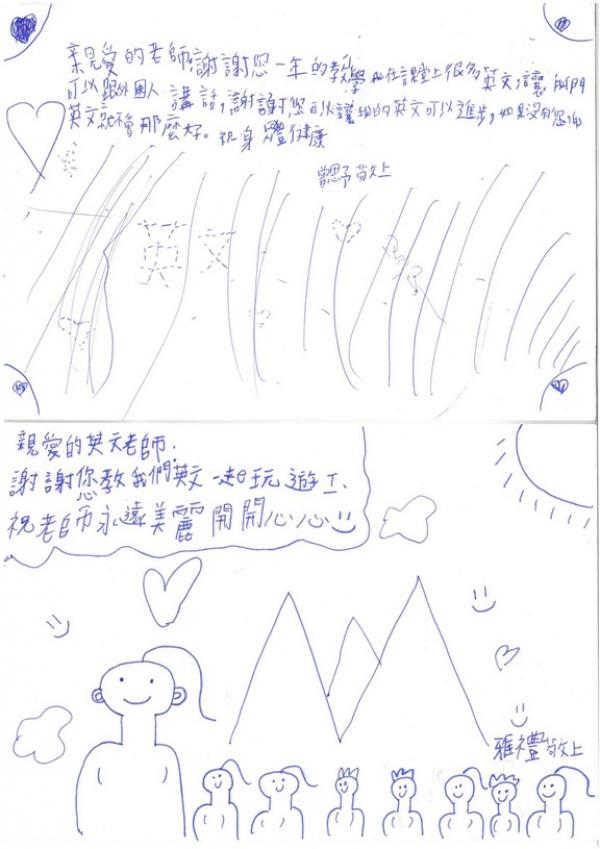 親愛的老師,謝謝您一年的教學 在課堂上很多英文,讓我們
可以跟外國人講話,謝謝您可以讓我的英文可以進步,如果沒有您
英文就不會那麼好。祝身體健康
敬上
英文
親愛的英文老師.
謝謝您教我們英文一起玩遊工、
祝老師永遠美麗開開心心
雅禮敬上